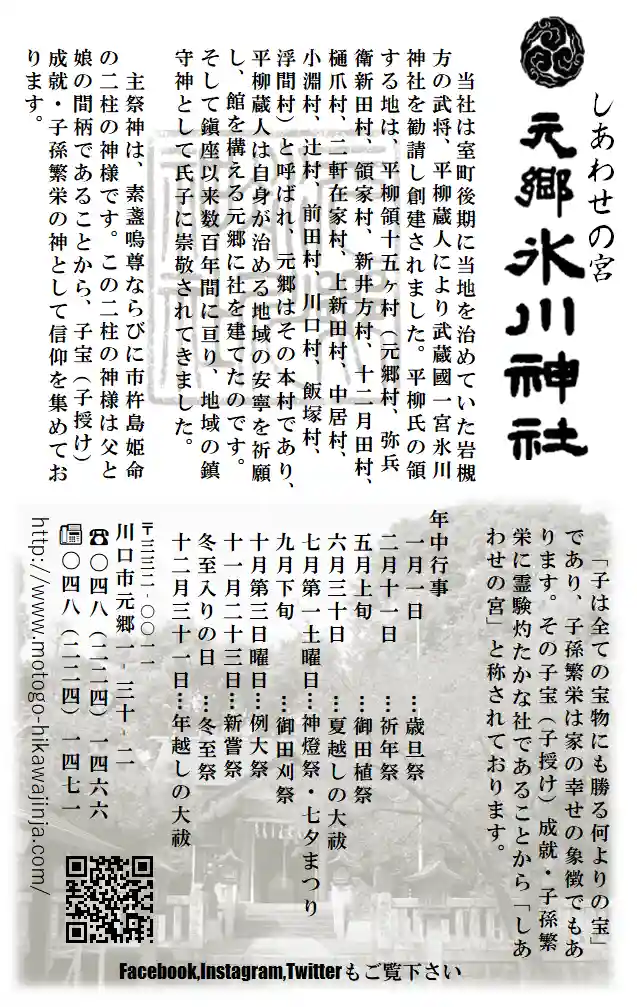 しあわせの宮
元郷氷川神社
当社は室町後期に当地を治めていた岩槻
方の武将、平柳蔵人により武蔵國一宮氷川
神社を勧請し創建されました。平柳氏の領
する地は、平柳領十五ヶ村（元郷村、弥兵
衛新田村、領家村、新井方村、十二月田村、
樋爪村、二軒在家村、上新田村、中居村、
小淵村、辻村、前田村、川口村、飯塚村、
浮間村）と呼ばれ、元郷はその本村であり、
平柳蔵人は自身が治める地域の安寧を祈願
し、館を構える元郷に社を建てたのです。
そして鎮座以来数百年間に亘り、地域の鎮
守神として氏子に崇敬されてきました。
主祭神は、素盞嗚尊ならびに市杵島姫命
の二柱の神様です。この二柱の神様は父と
娘の間柄であることから、子宝（子授け）
成就・子孫繁栄の神として信仰を集めてお
ります。
「子は全ての宝物にも勝る何よりの宝」
であり、子孫繁栄は家の幸せの象徴でもあ
ります。その子宝（子授け）成就・子孫繁
栄に霊験灼たかな社であることから「しあ
わせの宮」と称されております。
年中行事
一月一日…歳旦祭
二月十一日…祈年祭
五月上旬…御田植祭
六月三十日…夏越しの大祓
七月第一土曜日…神燈祭・七夕まつり
九月下旬…御田刈祭
十月第三日曜日…例大祭
十一月二十三日…新嘗祭
冬至入りの日…冬至祭
十二月三十一日…年越しの大祓
〒三三二-〇〇一一
川口市元郷一-三十-二
☎〇四八（二二四）一四六六
📠〇四八（二二四）一四七一
http://www.motogo-hikawajinja.com/
Facebook,Instagram,Twitterもご覧下さい